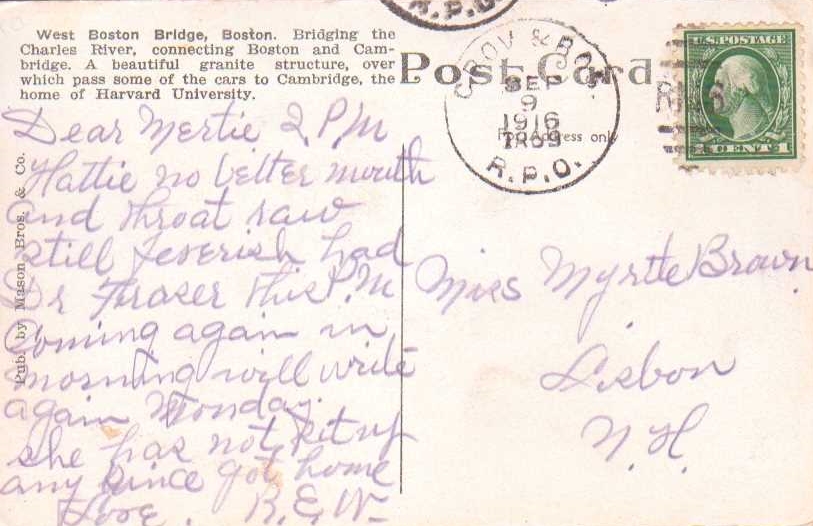 R.P.O.
West Boston Bridge, Boston. Bridging the
Charles River, connecting Boston and Cam-
bridge. A beautiful granite structure, over
which pass some of the cars to Cambridge, the
home of Harvard University.
Post Card
For Address only
SEP
9
1916
R.P.O.
U.S. POSTAGE
CENTS 1
Pub. by Mason Bros. & Co.
Dear Mertie 2 P.M
Hattie no better mouth
and throat raw
still feverish had
Dr Fraser this P.M
Coming again in
morning will write
again Monday.
she has not set up
any since got home
Love. R.E.W.
Miss Myrtle Brown
Lisbon
N.H.